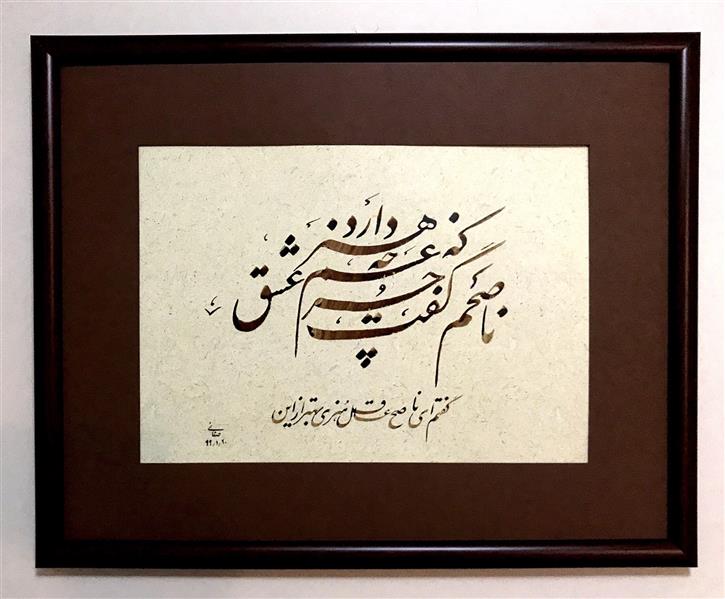 ناصحم گفت که جز غم چه هنر دارد عشق
گفتم ای ناصح عاقل هنری بهتر از این